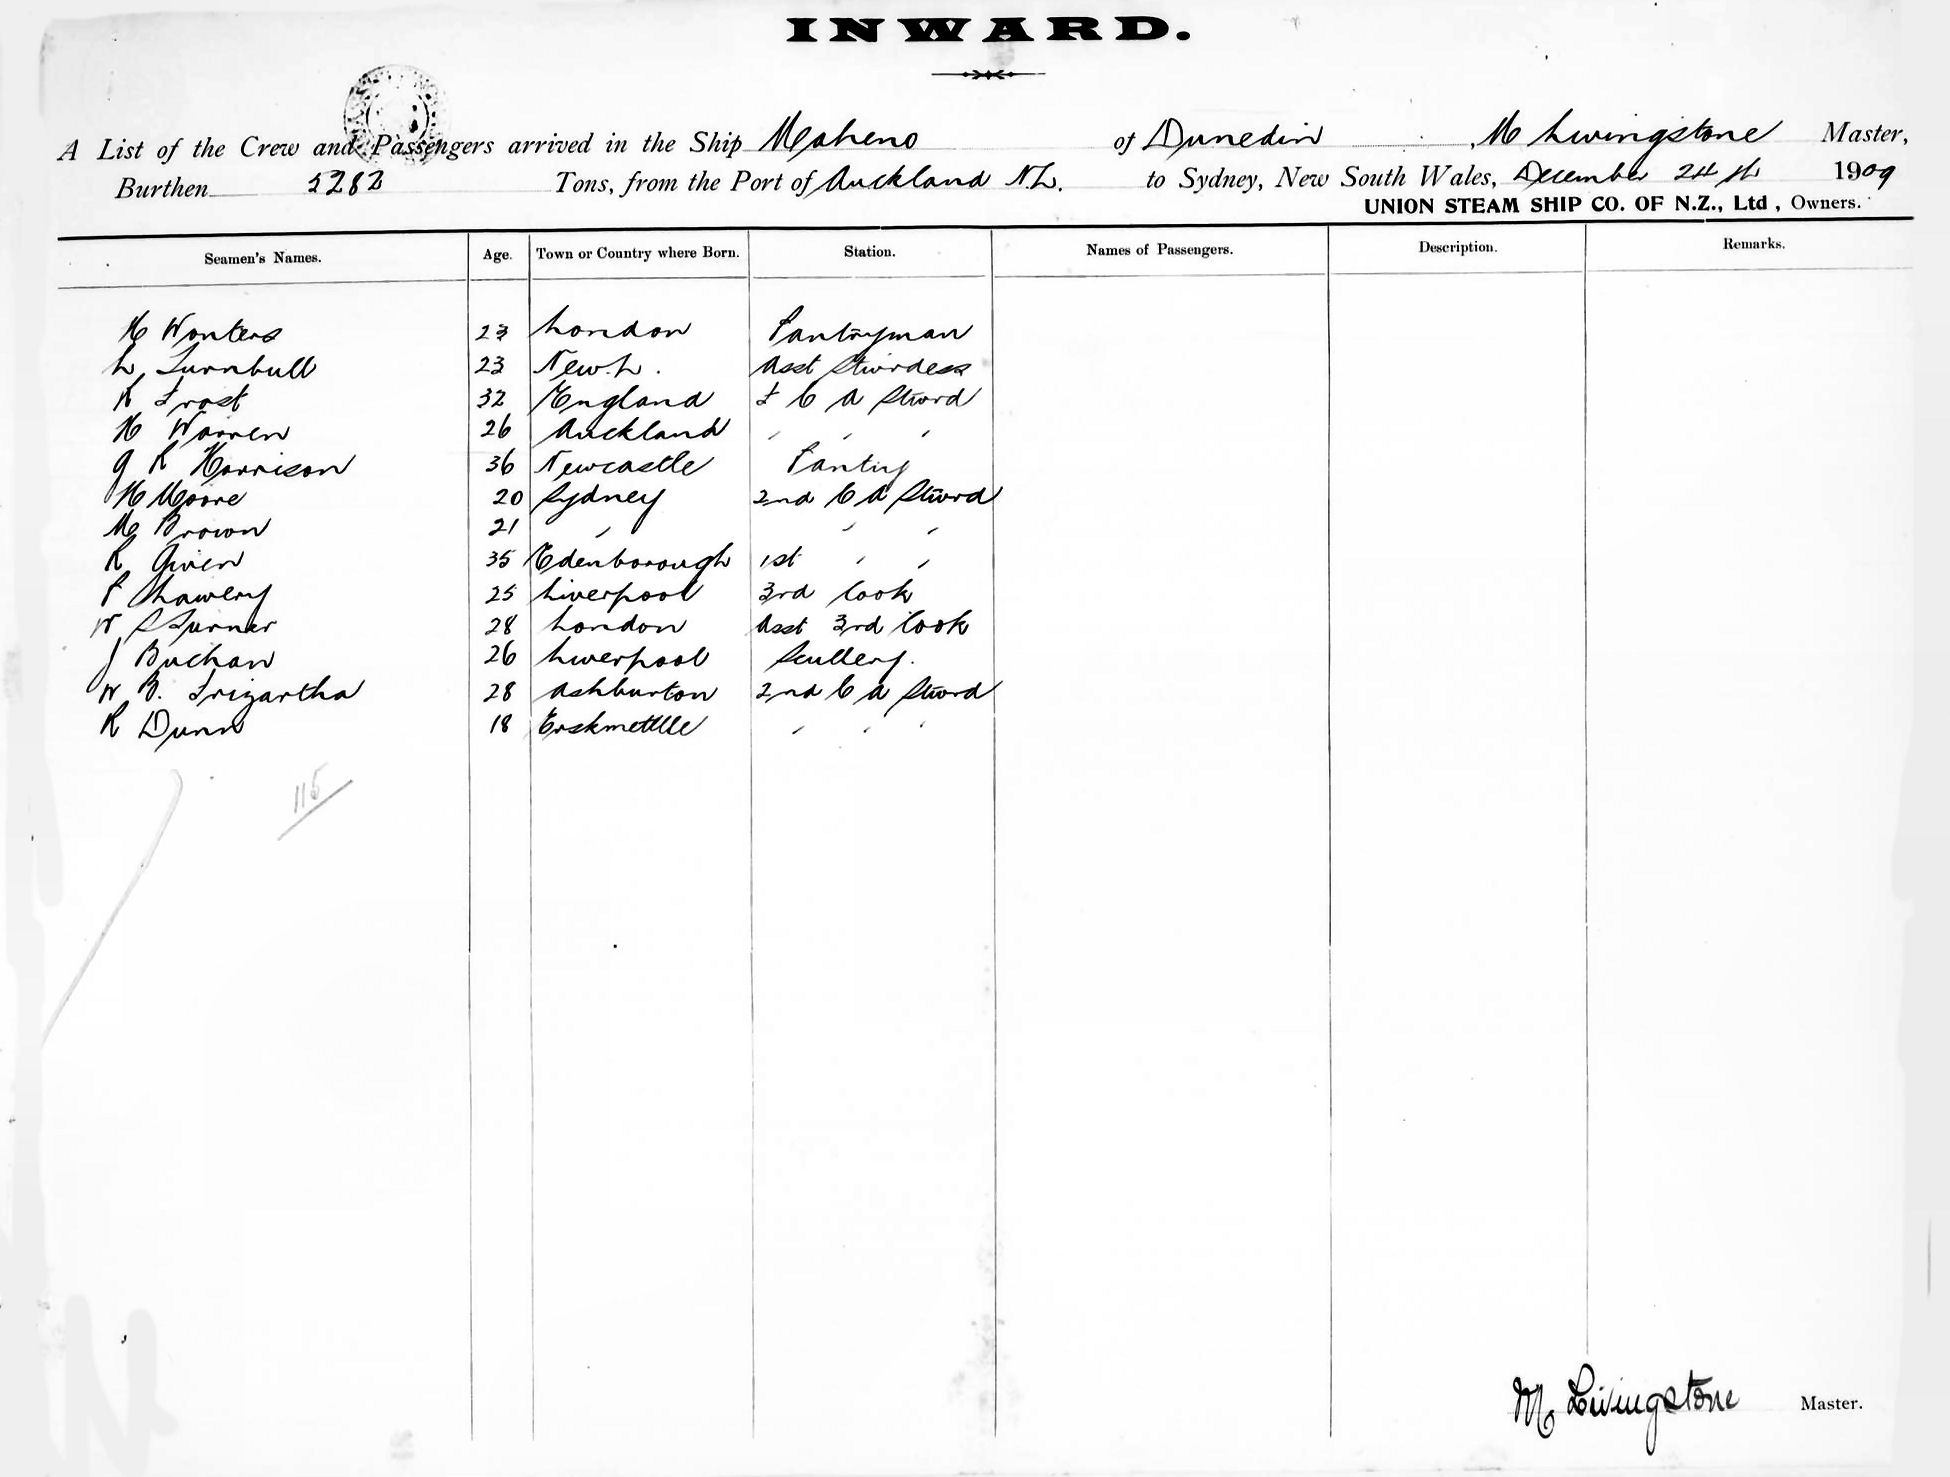 INWARD.
A List of the Crew and Passengers arrived in the Ship Maheno of Dunedin, M Livingstone Master,
Burthen 5282 Tons, from the Port of Auckland N.Z. to Sydney, New South Wales, December 24th 1909
UNION STEAM SHIP CO. OF N.Z., Ltd, Owners.
Seamen's Names. Age. Town or Country where Born. Station. Names of Passengers. Description. Remarks.
H Wouters 23 London Pantryman
L Turnbull 23 New.L. Asst Stwrdess
R Frost 32 England F C A Stword
H Warren 26 Auckland " " "
G R Harrison 36 Newcastle Pantry
H Moore 20 Sydney 2nd C A Stword
M Brown 21 " " "
R Given 35 Edenborough 1st " "
P Lawery 25 Liverpool 3rd Cook
W Turner 28 London Asst 3rd Cook
J Buchan 26 Liverpool Scullery.
W B. Trizartha 28 Ashburton 2nd C A Stword
R Dunn 18 " " "
115
M. Livingstone Master.